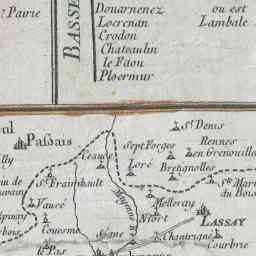 t Pavie
BASSE
Douarnenez
Locrenan
Crodon
Chateaulin
le Faou
Ploermur
ou est
Lambale
St Denis
Passais
Sept Forges
Rennes
en Grenouille
Ceauce
Loré
Brengnolles
St Fraimbault
St Mar
du Bois
Mayenne R.
Melleray
Vaucé
Niort
LASSAY
Couesme
Chantrigné
Courbrie
le Pas